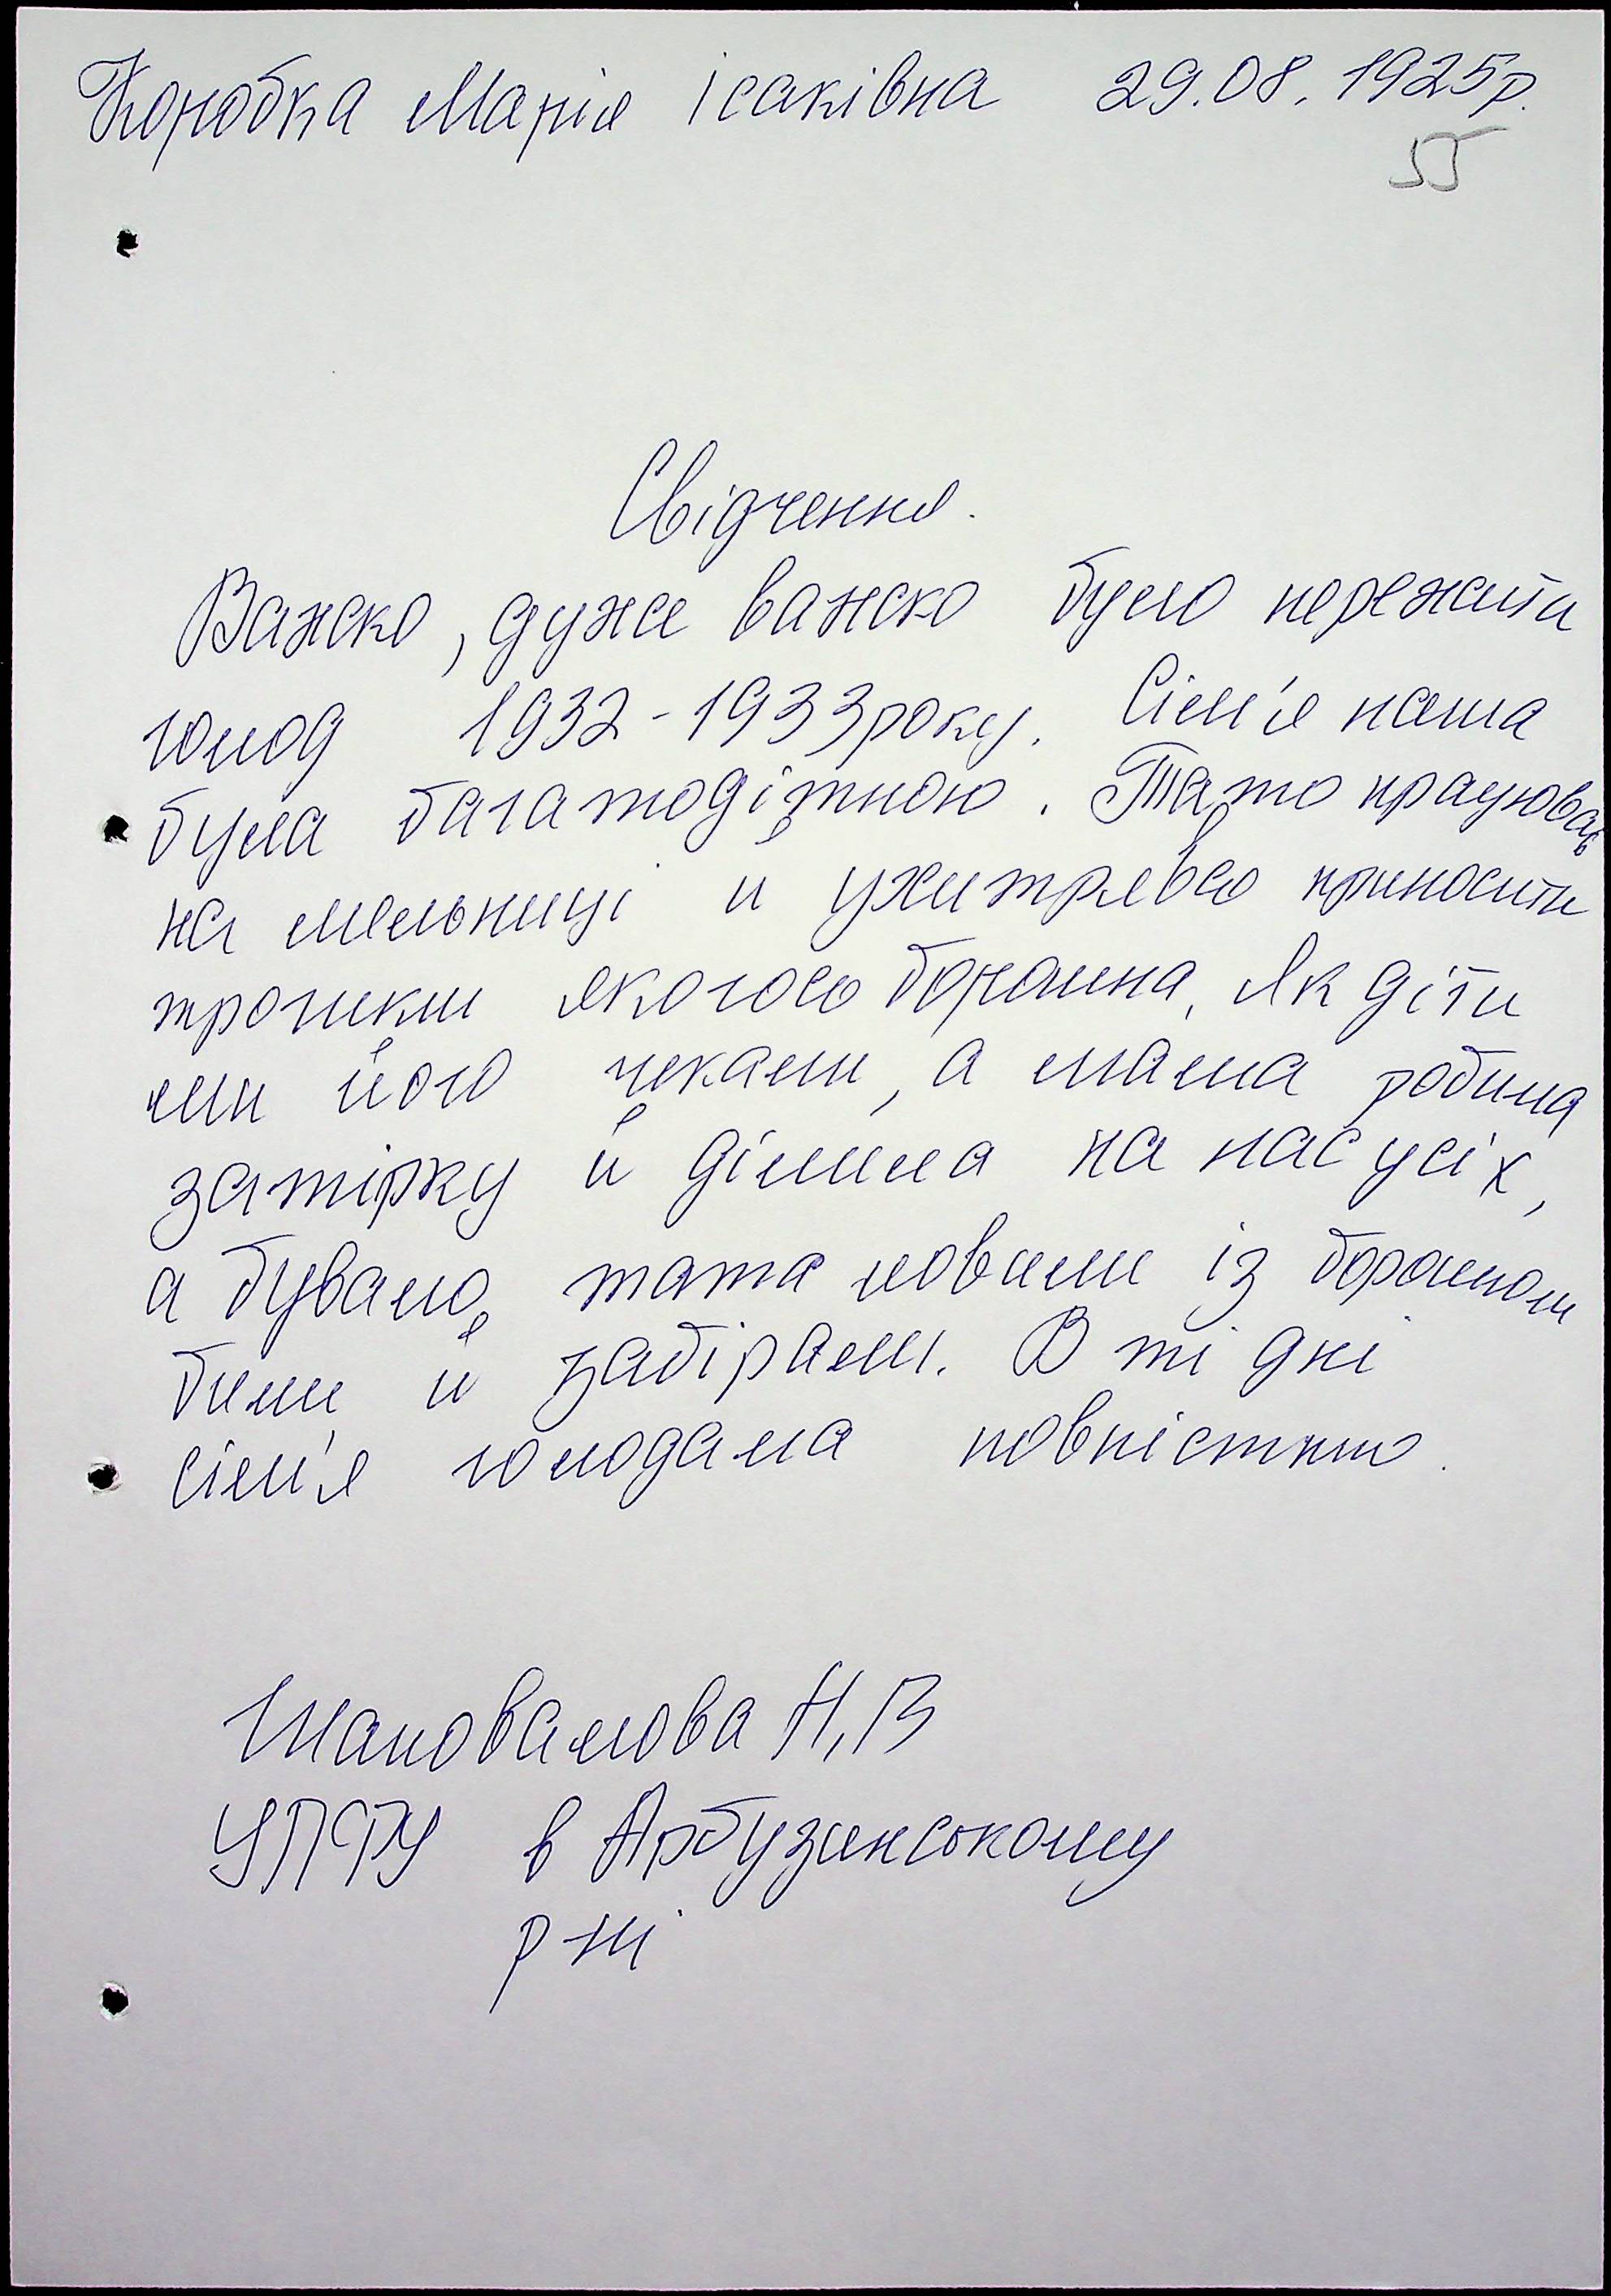 Коробка Марія Ісаківна 29.08.1925р.
55
Свідчення.
Важко, дуже важко було пережити
голод 1932-1933року. Сім'я наша
була багатодітною. Тато працював
на мельниці й ухитрявсь приносити
трошки якогось борошна, як діти
ми його чекали, а мама робила
затірку й ділила на нас усіх,
а бувало, тата ловили із борошном
били й забірали. В ті дні
сім'я голодала повністтю.
Шаповалова Н,В
УПФУ в Арбузинському
р-ні